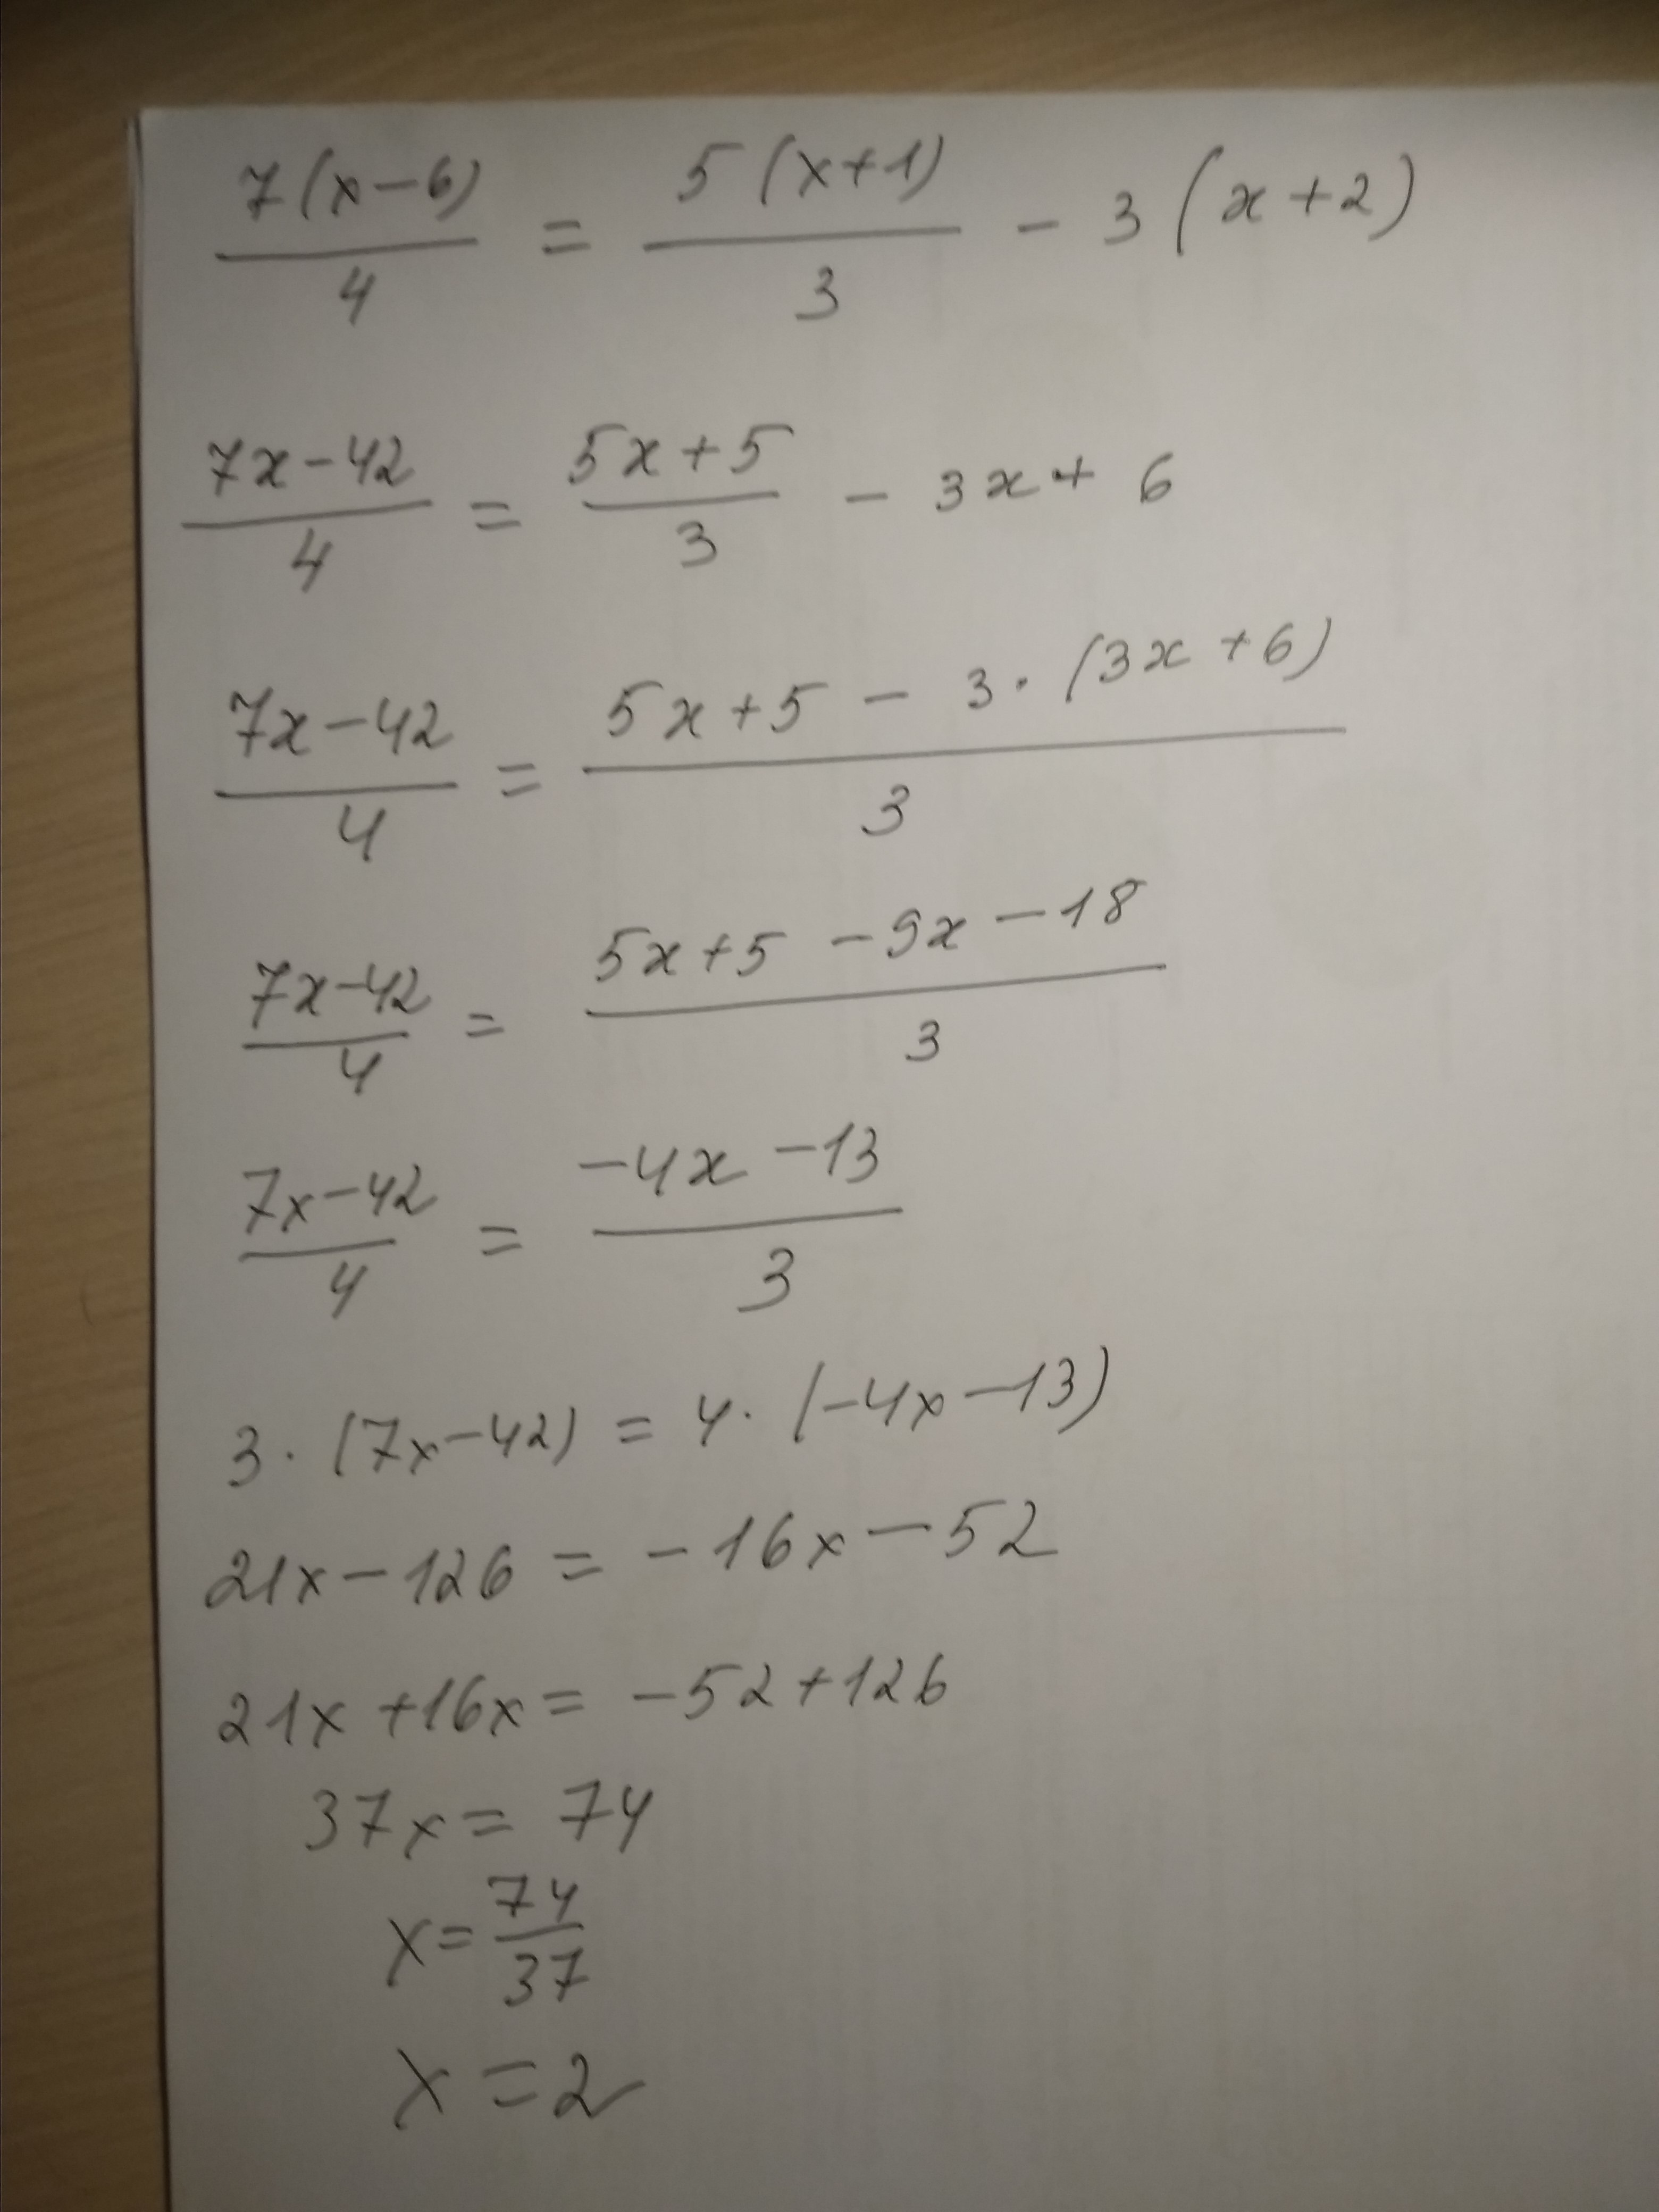 7(x-6)/4 = 5(x+1)/3 - 3(x+2)
7x-42/4 = 5x+5/3 - 3x+6
7x-42/4 = 5x+5 - 3·(3x+6)/3
7x-42/4 = 5x+5 -9x-18/3
7x-42/4 = -4x-13/3
3·(7x-42) = 4·(-4x-13)
21x-126 = -16x-52
21x+16x = -52+126
37x = 74
x = 74/37
x = 2